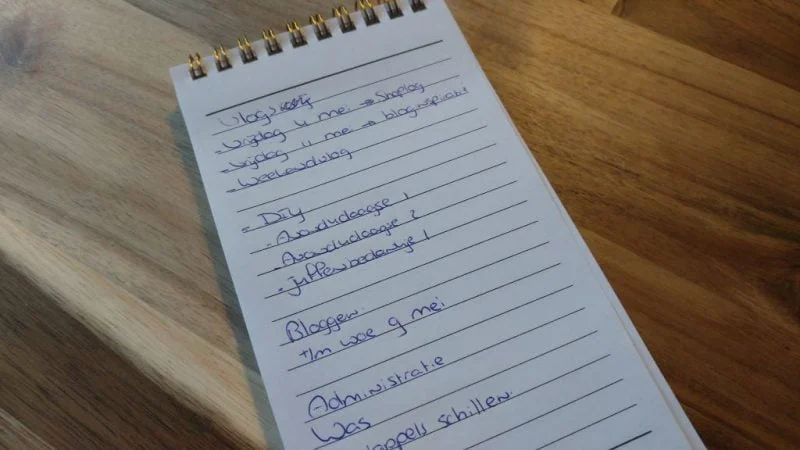 Vlogs
- vrijdag 4 mei → Shoplog
- vrijdag 11 mei → bloginspiratie
- Weekendvlog
- DIY
- Avondvierdaagse 1
- Avondvierdaagse 2
- juffenbedankje 1
Bloggen.
t/m woe 9 mei
Administratie
Was
schillen.